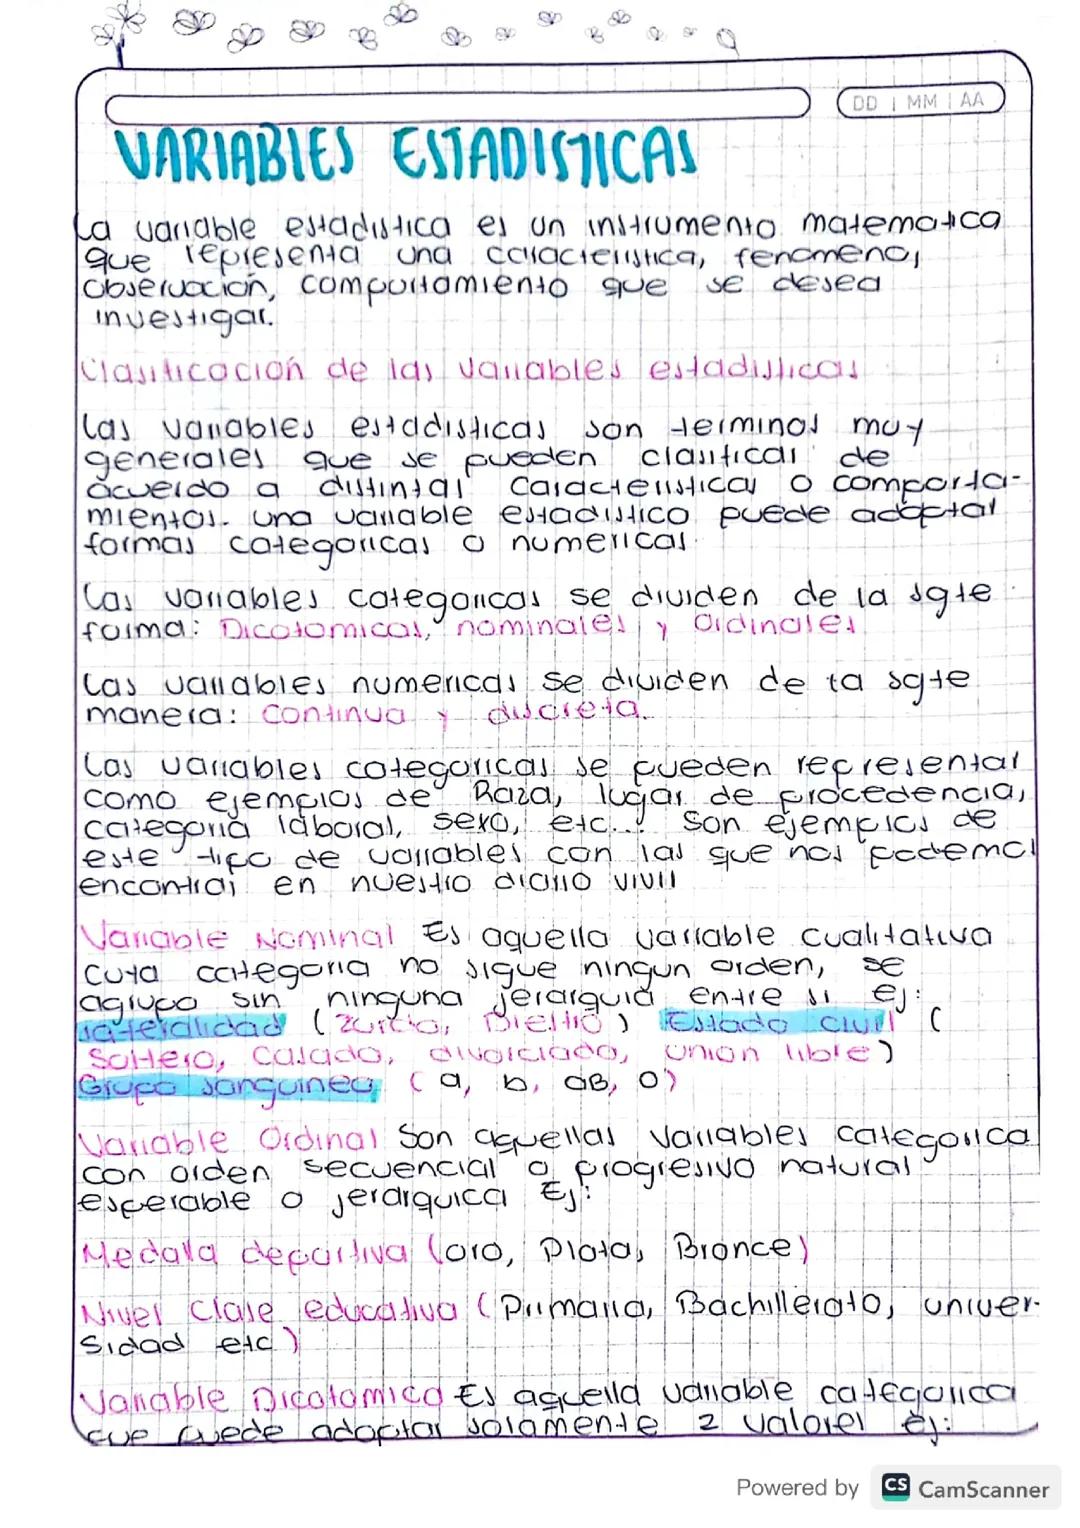 DD | MM | AA
VARIABLES ESTADISTICAS
La variable estadistica es un instrumento matematica
que representa una caracteristica, fenomeno,
observación, comportamiento que se desea
investigar.
Clasificación de las variables estadisticas
Las variables estadisticas son terminos muy
generales que se pueden clasificar de
acuerdo a distintas caracteristicas o comporta-
mientos. una variable estadistico puede adoptar
formas categoricas o numericas.
Las variables categoricas se dividen de la sgte
forma: Dicotomicas, nominales y Ordinales
Las variables numericas se dividen de la sgte
manera: Continua y discreta.
Las variables categoricas se pueden representar
como ejemplos de Raza, lugar de procedencia,
categoria laboral, sexo, etc... Son ejemplos de
este tipo de variables con las que nos podemos
encontrar en nuestro diario vivir
Variable Nominal Es aquella variable cualitativa
cuya categoria no sigue ningun orden, se
agrupa sin ninguna jerarquia entre si ej:
lateralidad (zurdo, Diestro) Estado civil (
Soltero, casado, divorciado, union libre)
Grupo sanguineo (a, b, aB, O)
Variable Ordinal Son aquellas variables categorica
con orden secuencial o progresivo natural
esperable o jerarquica Ej:
Medalla deportiva (oro, Plata, Bronce)
Nivel Clase educativa (Primaria, Bachillerato, univer-
sidad etc)
Variable Dicotomica Es aquella variable categorica
que puede adoptar solamente 2 valores ej:
Powered by CS CamScanner